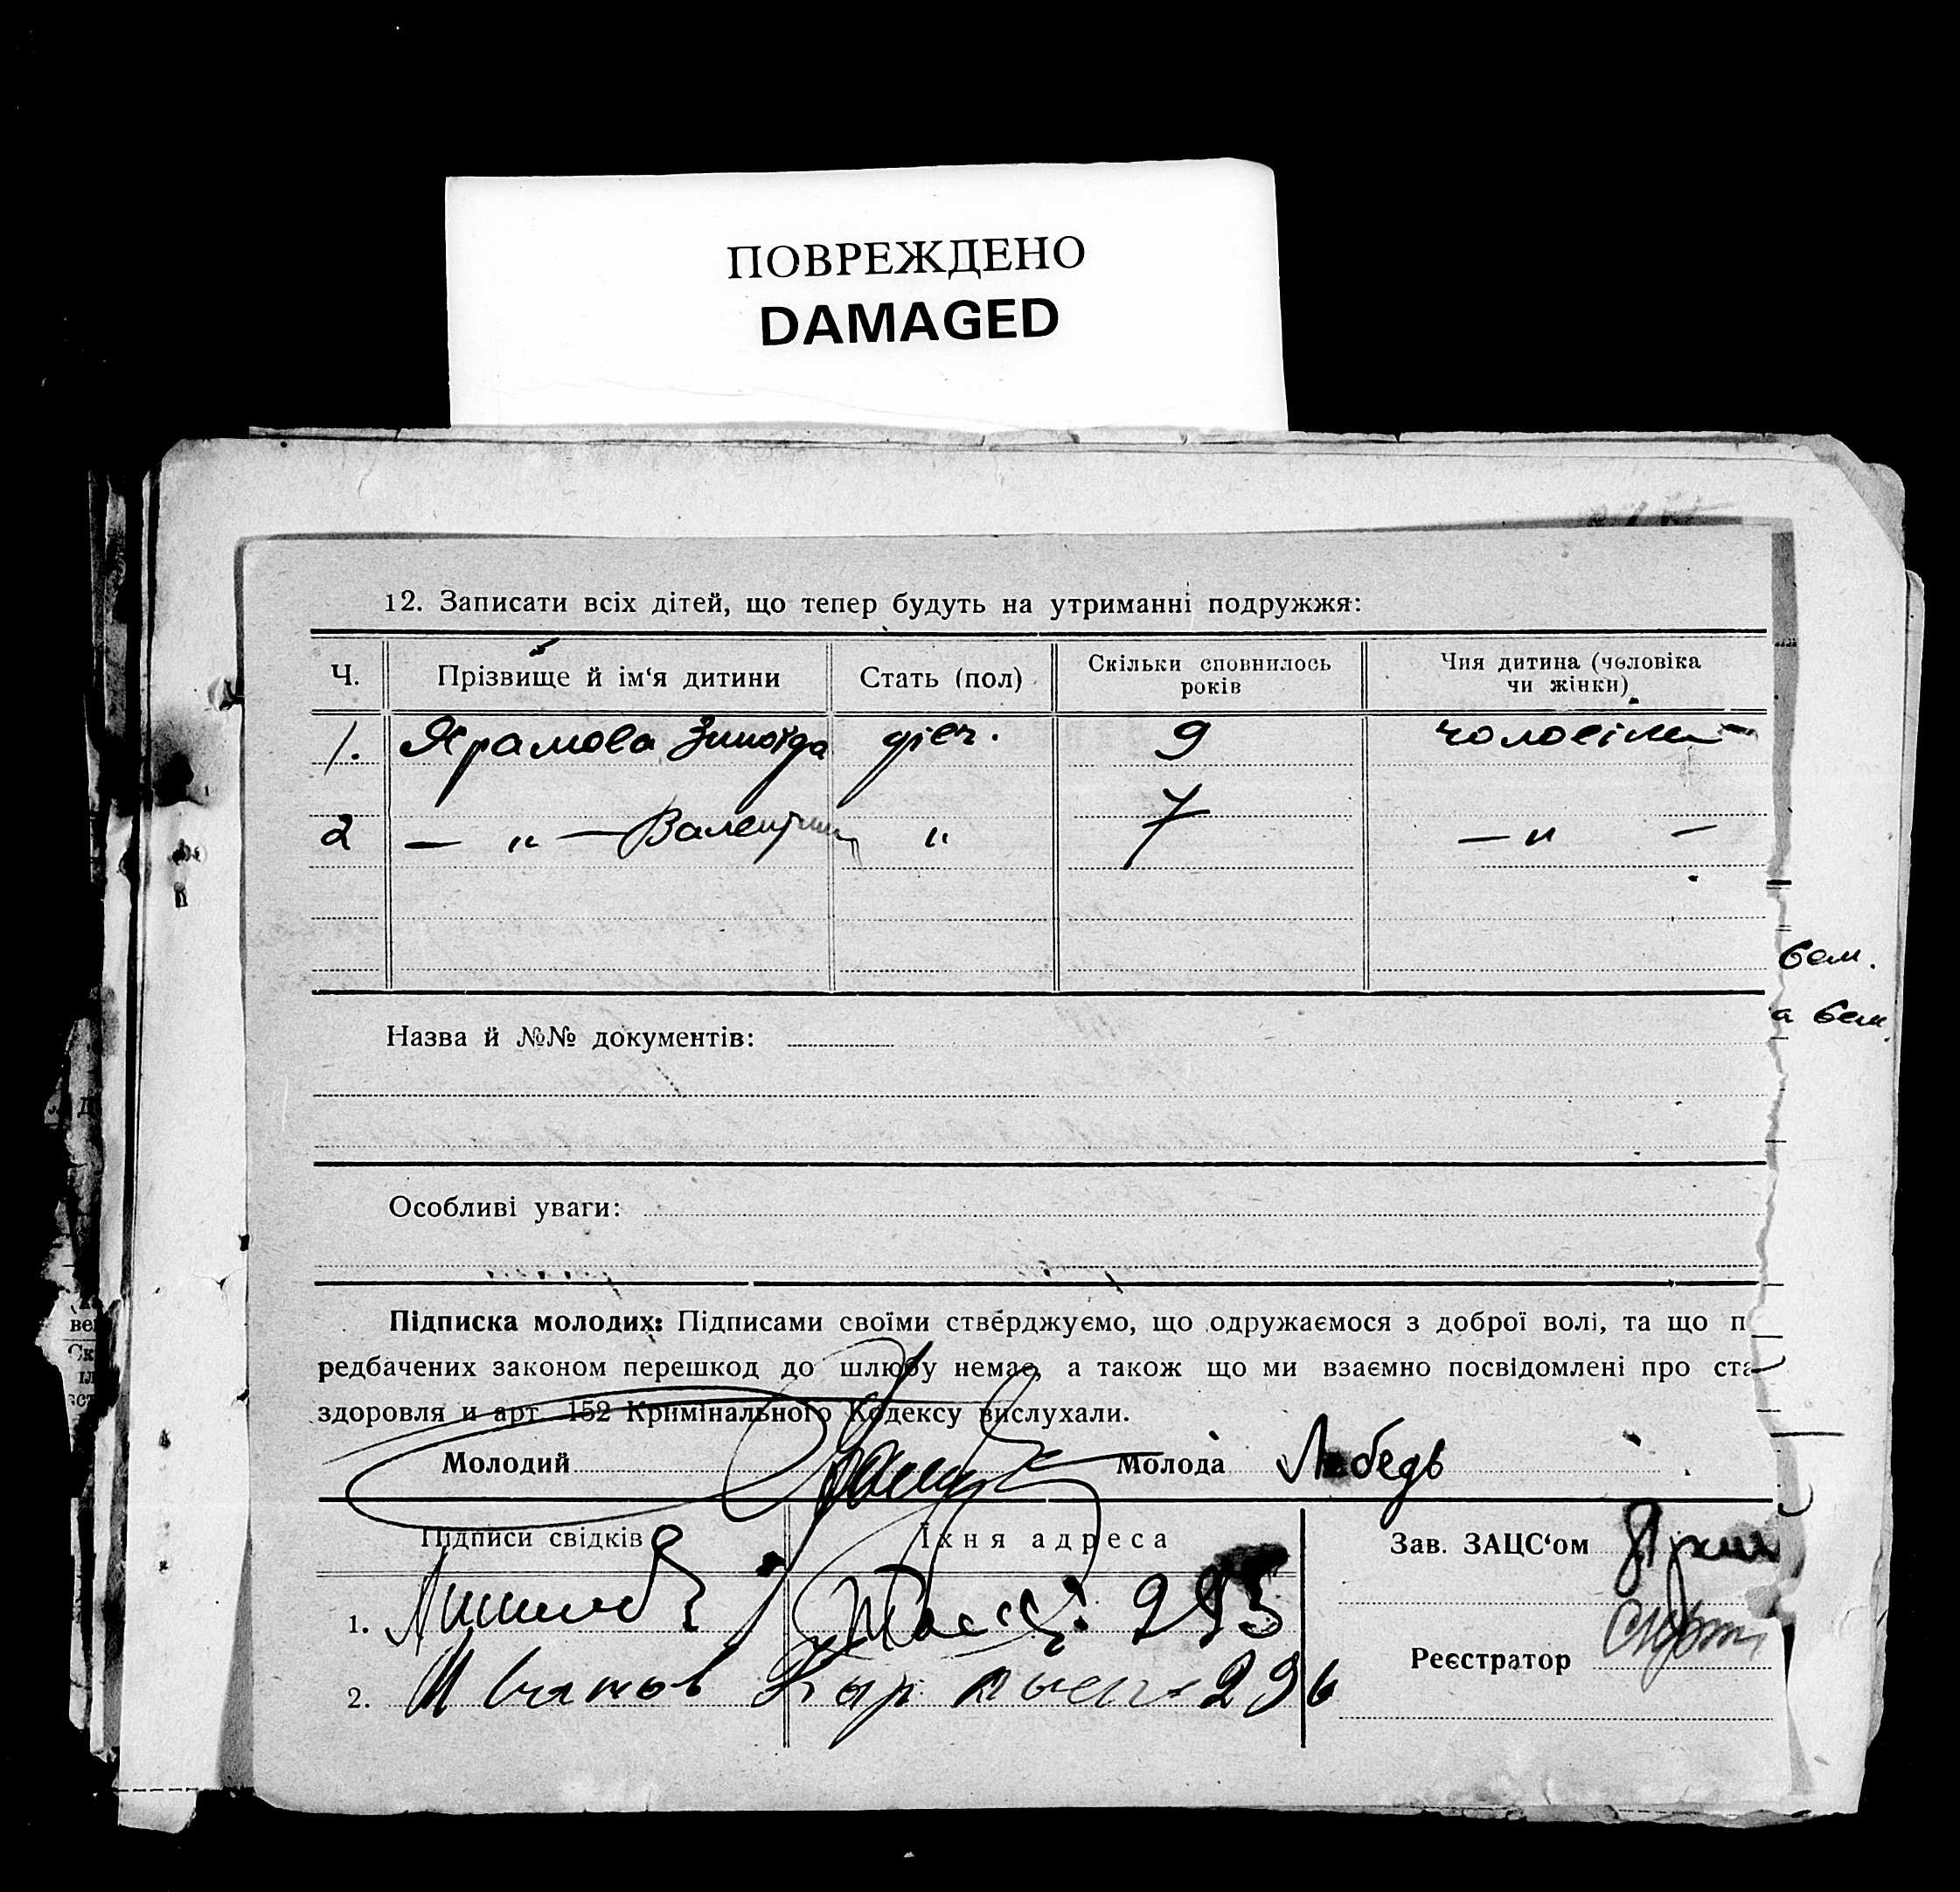 ПОВРЕЖДЕНО
DAMAGED
12. Записати всіх дітей, що тепер будуть на утриманні подружжя:
Ч. Прізвище й ім‘я дитини Стать (пол) Скільки сповнилось років Чия дитина (чоловіка чи жінки)
1. Храмова Зиноїда дівч. 9
2 — „ — Валентин „ 7 — „ —
бем.
а бем
Назва й №№ документів:
Особливі уваги:
Підписка молодих: Підписами своїми стверджуємо, що одружаємося з доброї волі, та що п
редбачених законом перешкод до шлюбу немає, а також що ми взаємно посвідомлені про ста
здоровля и арт. 152 Кримінального Кодексу вислухали.
Молодий Молода Лебедь
Підписи свідків Їхня адреса Зав. ЗАЦС‘ом
1. 293
2. Иванов 296 Реєстратор